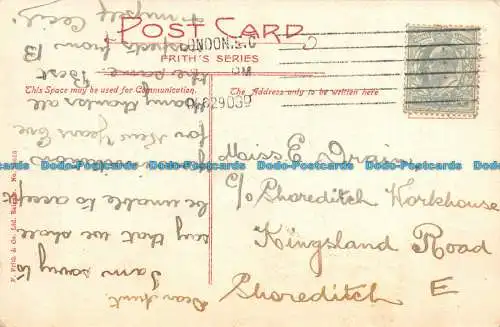 POST CARD
FRITH'S SERIES
This Space may be used for Communication.
The Address only to be written here
LONDON.S.C
PM
Dear Aunt
I am sorry to
say that we shall
be unable to accept
invitation
for New Years Eve
Many thanks all
the same Best
respects from B
& myself Cecil
Miss E
C/o Shoreditch Workhouse
Kingsland Road
Shoreditch E
F. Frith & Co. Ltd. Reigate. No.
Dodo-Postcards Dodo-Postcards Dodo-Postcards Dodo-Postcards Dodo-Postcards